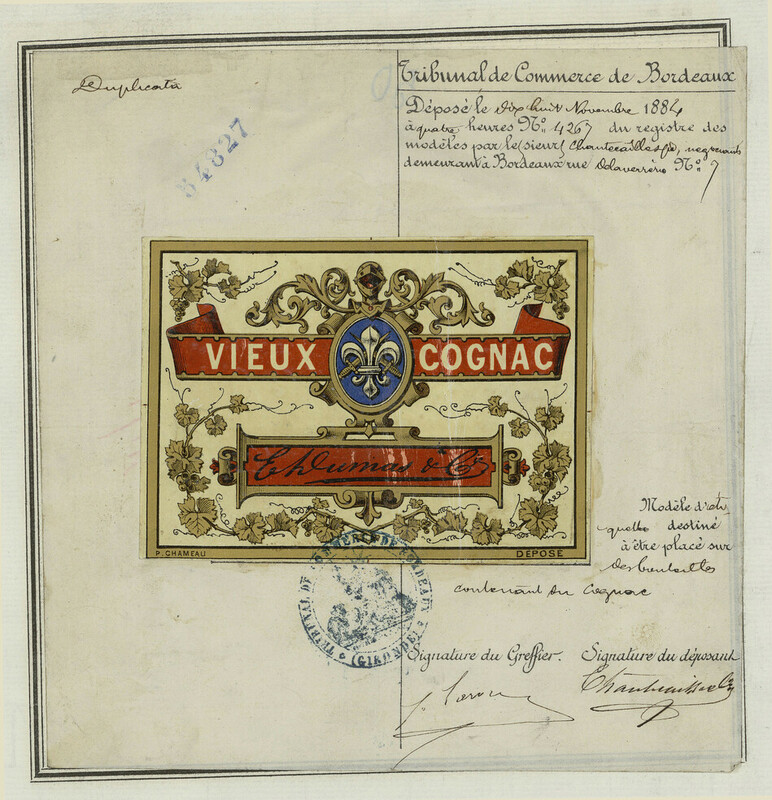 Duplicata
54827
Tribunal de Commerce de Bordeaux
Déposé le dix huit Novembre 1884
à quatre heures No. 4267 du registre des
modèles par le(sieurs Chantecaille &
demeurant à Bordeaux rue No. 7
VIEUX COGNAC
Ch Dumas & Cie
P. CHAMEAU
DÉPOSÉ
TRIBUNAL DE COMMERCE DE BORDEAUX
(GIRONDE)
Modèle d'éti
quette destiné
à être placé sur
des bouteilles
contenant du Cognac
Signature du Greffier.
Signature du déposant